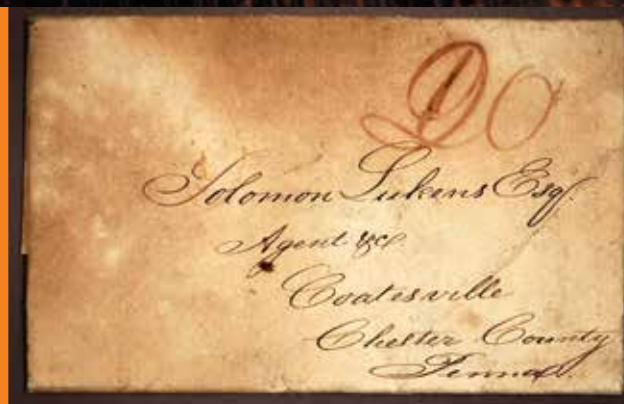 Solomon Lukens Esq.
Agent &c
Coatesville
Chester County
Penna.